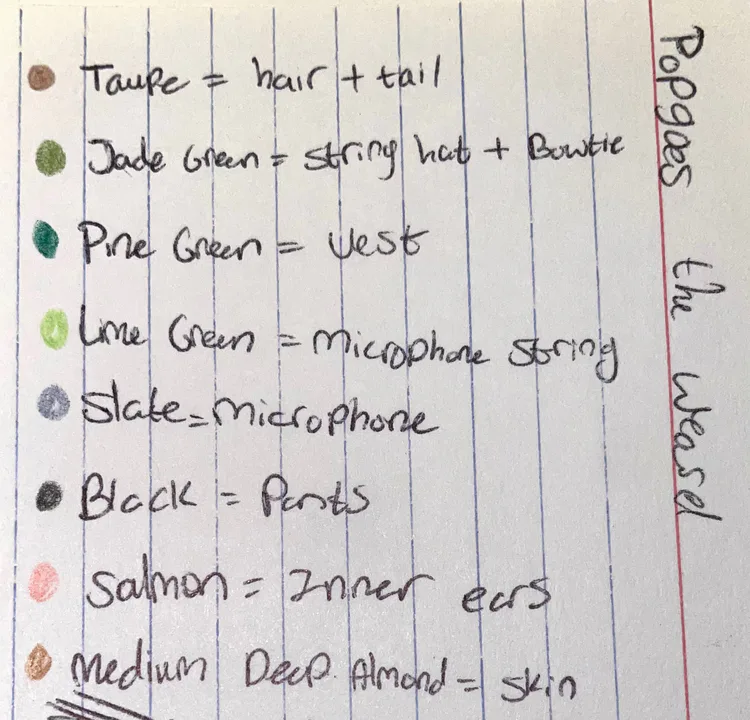 Popgoes the Weasel
Taupe = hair + tail
Jade Green = string hat + Bowtie
Pine Green = Vest
Lime Green = microphone string
Slate = microphone
Black = Pants
Salmon = Inner ears
Medium Deep Almond = skin